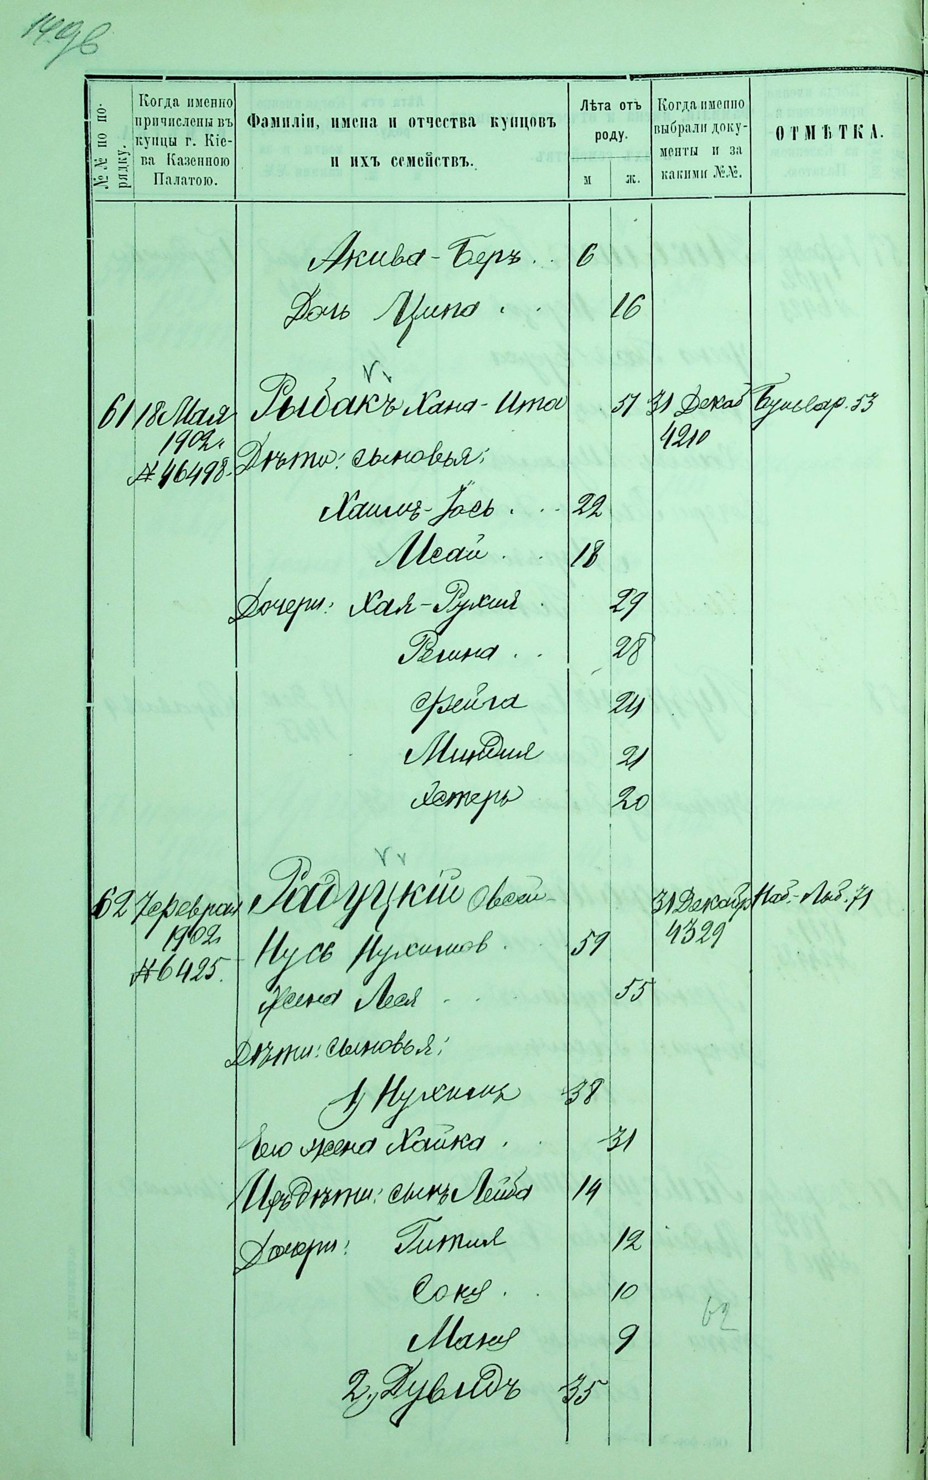 1496
№№ по порядку.
Когда именно причислены въ купцы г. Кіева Казенною Палатою.
Фамиліи, имена и отчества купцовъ и ихъ семействъ.
Лѣта отъ роду.
м
ж.
Когда именно выбрали документы и за какими №№.
ОТМѢТКА.
Акива-Беръ 6
Дочь Ципа 16
61 18 Мая Рыбакъ Хана-Ита 51 31 Декаб Бульвар. 53
1902 4210
№ 16498 Дѣти: сыновья:
Хаимъ-Іось 22
Исай 18
Дочери: Хая-Рухля 29
Рейна 28
Фейга 24
Миндля 21
Эстеръ 20
62 7 Февраля Радуцкій Овсей- 31 Декабр Наб.-Лыб. 71
1902 4329
№ 6425 Нусь Нухимов 59
Жена Лея 55
Дѣти: сыновья:
1) Нухимъ 38
Его жена Хайка 31
Ихъ дѣти: сынъ Лейба 14
Дочери: Гитля 12
Соня 10
Маня 9
62
2) Дувидъ 35